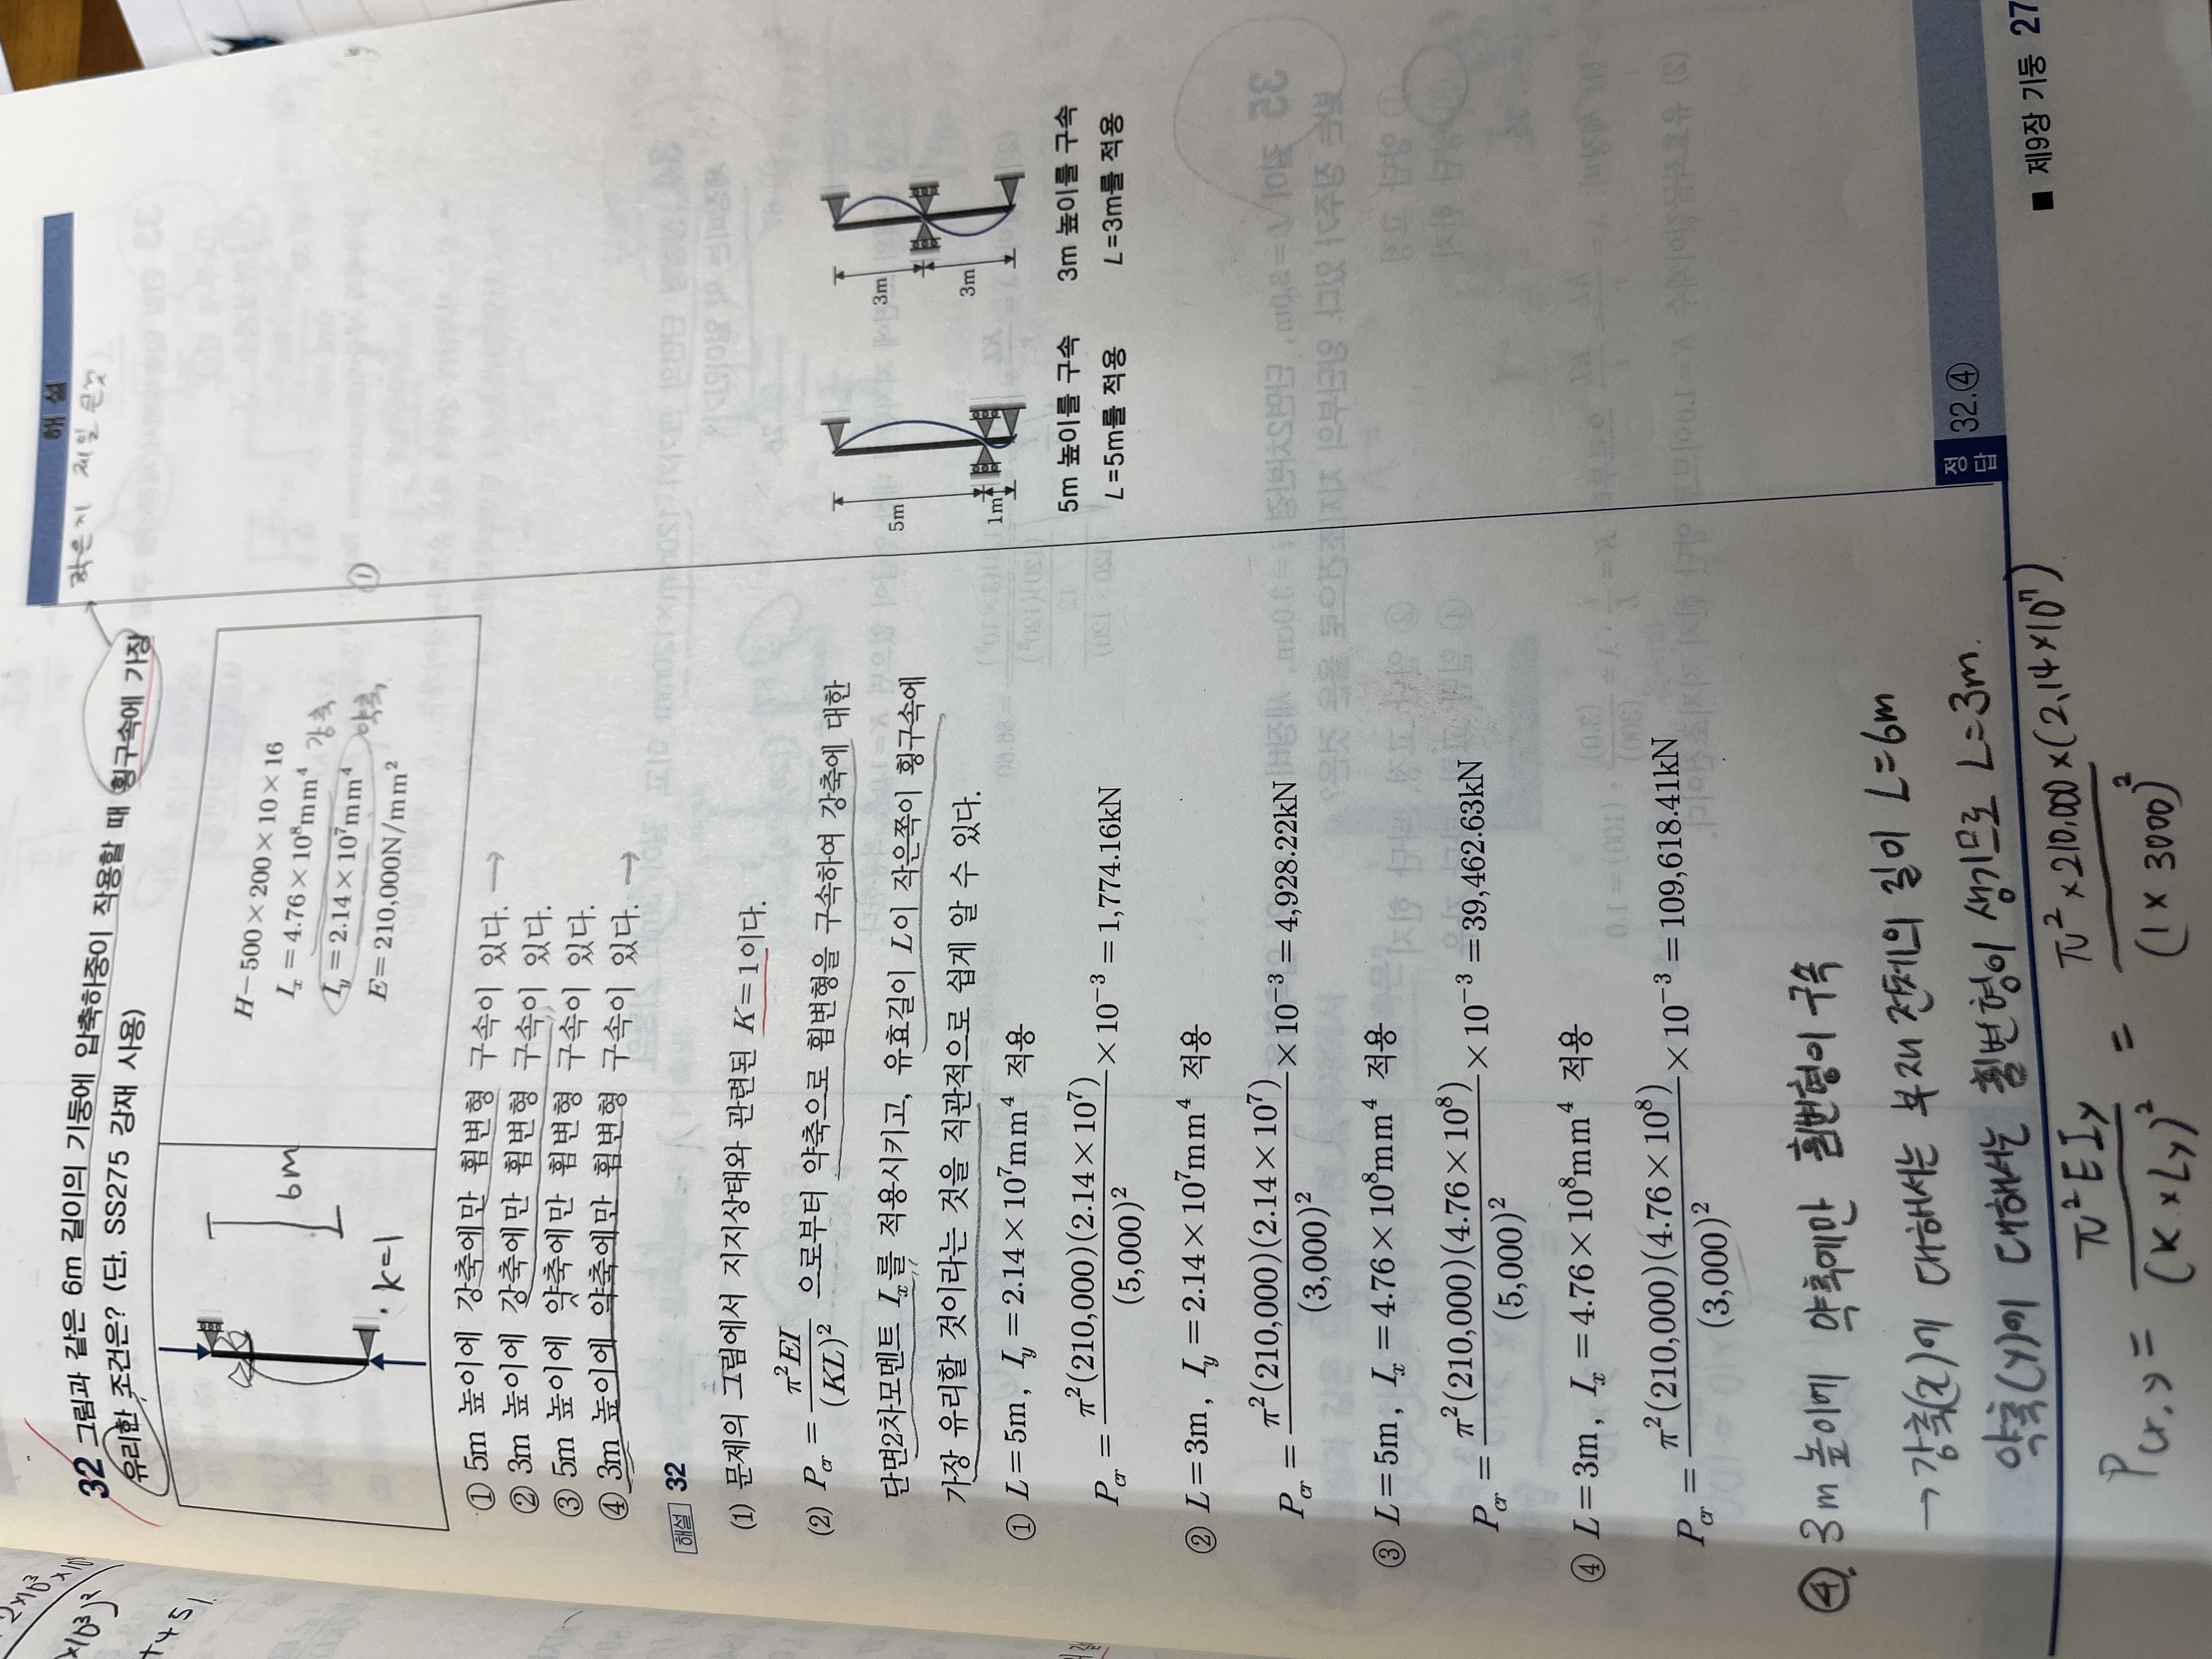 해 설
32 그림과 같은 6m 길이의 기둥에 압축하중이 작용할 때 횡구속에 가장
유리한 조건은? (단, SS275 강재 사용)
→ 작은지
6m
k=1
H-500×200×10×16
I_x = 4.76×10⁸mm⁴ 강축
I_y = 2.14×10⁷mm⁴ 약축
E=210,000N/mm²
① 5m 높이에 강축에만 휨변형 구속이 있다. →
② 3m 높이에 강축에만 휨변형 구속이 있다.
③ 5m 높이에 약축에만 휨변형 구속이 있다.
④ 3m 높이에 약축에만 휨변형 구속이 있다. →
①
해설 32
(1) 문제의 그림에서 지지상태와 관련된 K=1이다.
(2) P_cr = π²EI/(KL)² 으로부터 약축으로 휨변형을 구속하여 강축에 대한
단면2차모멘트 I_x를 적용시키고, 유효길이 L이 작은쪽이 횡구속에
가장 유리할 것이라는 것을 직관적으로 쉽게 알 수 있다.
① L=5m, I_y=2.14×10⁷mm⁴ 적용
P_cr = π²(210,000)(2.14×10⁷)/(5,000)² ×10⁻³=1,774.16kN
② L=3m, I_y=2.14×10⁷mm⁴ 적용
P_cr = π²(210,000)(2.14×10⁷)/(3,000)² ×10⁻³=4,928.22kN
③ L=5m, I_x=4.76×10⁸mm⁴ 적용
P_cr = π²(210,000)(4.76×10⁸)/(5,000)² ×10⁻³=39,462.63kN
④ L=3m, I_x=4.76×10⁸mm⁴ 적용
P_cr = π²(210,000)(4.76×10⁸)/(3,000)² ×10⁻³=109,618.41kN
5m
1m
5m 높이를 구속
L=5m를 적용
3m
3m
3m 높이를 구속
L=3m를 적용
④ 3m 높이에 약축에만 휨변형이 구속
→ 강축(x)에 대해서는 부재 전체의 길이 L=6m
약축(y)에 대해서는 휨변형이 생기므로 L=3m.
Pcr,y = π²EIy/(K×Ly)² = π²×210,000×(2,14×10⁷)/(1×3000)²
정답 32.④
■ 제9장 기둥 27